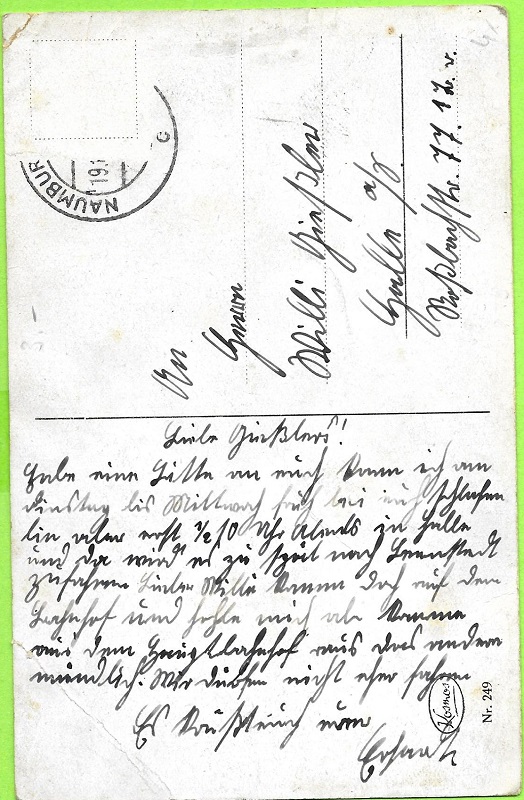 NAUMBUR
19.
C
An
Herrn
Willi Gießler
Halle a/S
Roßbachstr. 77. 1 Tr. v.
Liebe Gießlers!
Habe eine Bitte an euch kann ich am
Dinstag bis Mittwoch früh bei euch schlafen
bin aber erst 1/2 10 Uhr Abends in Halle
und da wird es zu spät nach Bennstedt
zufahren Lieber Willi komm doch auf dem
Bahnhof und hohle mich ab komme
aus dem Hauptbahnhof raus das andere
mündlich. Wir dürfen nicht eher fahren
Es
Kosmos
Nr. 249